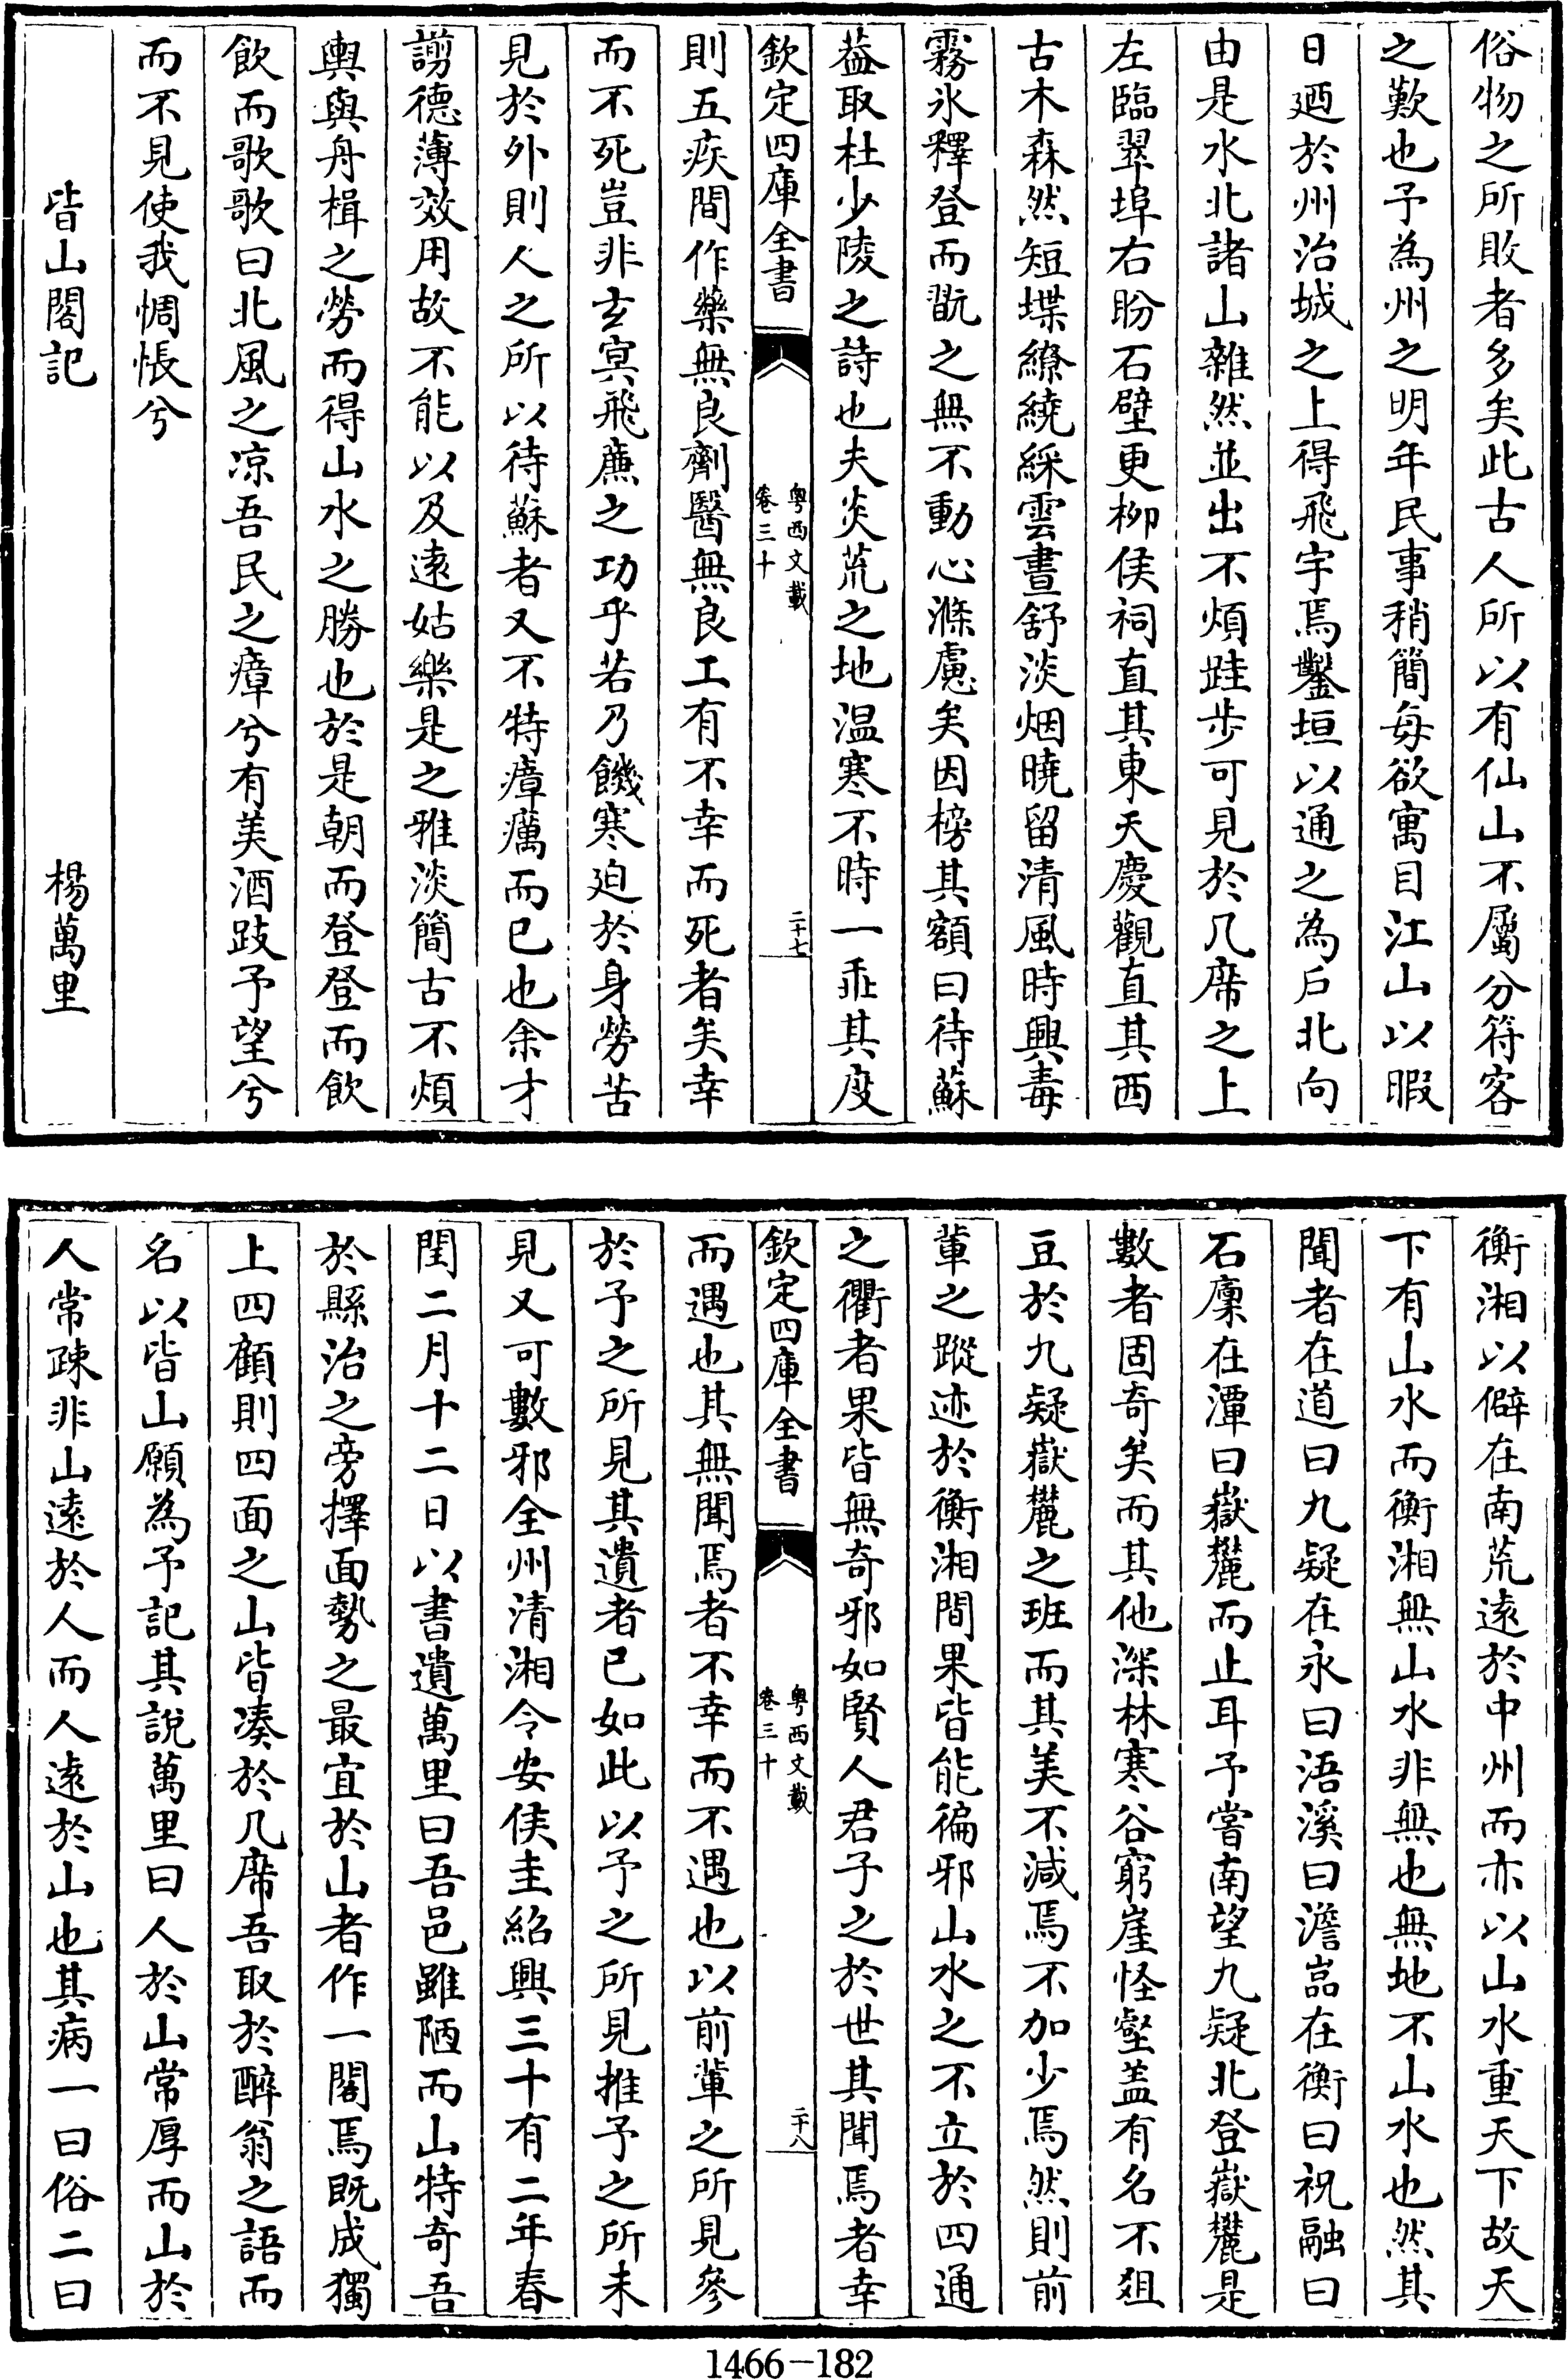 俗物之所敗者多矣此古人所以有仙山不屬分符客
之歎也予為州之明年民事稍簡每欲寓目江山以暇
日廼於州治城之上得飛宇焉鑿垣以通之為戶北向
由是水北諸山雜然並出不煩跬步可見於几席之上
左臨翠埠右盼石壁更柳侯祠直其東天慶觀直其西
古木森然短堞繚繞綵雲晝舒淡烟曉留清風時興毒
霧氷釋登而翫之無不動心滌慮矣因榜其額曰待蘇
葢取杜少陵之詩也夫炎荒之地温寒不時一乖其度
欽定四庫全書
粤西文載
卷三十
二十七
則五疾間作藥無良劑醫無良工有不幸而死者矣幸
而不死豈非玄冥飛廉之功乎若乃饑寒廹於身勞苦
見於外則人之所以待蘇者又不特瘴癘而已也余才
謭德薄效用故不能以及逺姑樂是之雅淡簡古不煩
輿與舟楫之勞而得山水之勝也於是朝而登登而飲
飲而歌歌曰北風之凉吾民之瘴兮有美酒跂予望兮
而不見使我惆悵兮
皆山閣記 楊萬里
衡湘以僻在南荒逺於中州而亦以山水重天下故天
下有山水而衡湘無山水非無也無地不山水也然其
聞者在道曰九疑在永曰浯溪曰澹嵓在衡曰祝融曰
石廩在潭曰嶽麓而止耳予嘗南望九疑北登嶽麓是
數者固奇矣而其他深林寒谷窮崖怪壑盖有名不爼
豆於九疑嶽麓之班而其美不減焉不加少焉然則前
軰之蹤迹於衡湘間果皆能徧邪山水之不立於四通
之衢者果皆無奇邪如賢人君子之於世其聞焉者幸
欽定四庫全書
粤西文載
卷三十
二十八
而遇也其無聞焉者不幸而不遇也以前軰之所見參
於予之所見其遺者已如此以予之所見推予之所未
見又可數邪全州清湘令安侯圭紹興三十有二年春
閏二月十二日以書遺萬里曰吾邑雖陋而山特奇吾
於縣治之旁擇面勢之最宜於山者作一閣焉既成獨
上四顧則四面之山皆凑於几席吾取於醉翁之語而
名以皆山願為予記其說萬里曰人於山常厚而山於
人常疎非山逺於人而人逺於山也其病一曰俗二曰
1466-182